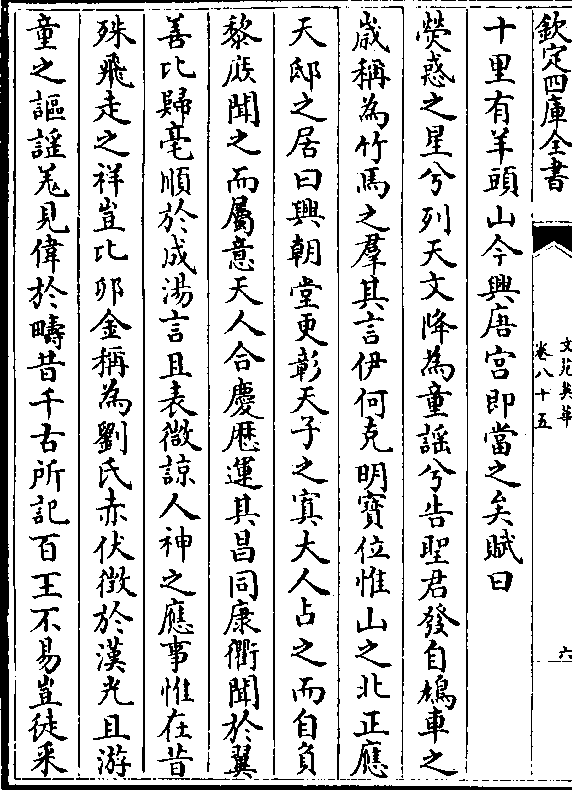 欽定四庫全書
文苑英華
卷八十五
六
十里有羊頭山今興唐宫即當之矣賦曰
熒惑之星兮列天文降為童謡兮告聖君發自鳩車之
嵗稱為竹馬之羣其言伊何克明寳位惟山之北正應
天邸之居曰興朝堂更彰天子之寘大人占之而自負
黎庻聞之而屬意天人合慶厯運其昌同康衢聞於翼
善比歸亳順於成湯言且表微諒人神之應事惟在昔
殊飛走之祥豈比夘金稱為劉氏赤伏徴於漢光且游
童之謳謡羌見偉於疇昔千古所記百王不易豈徒采